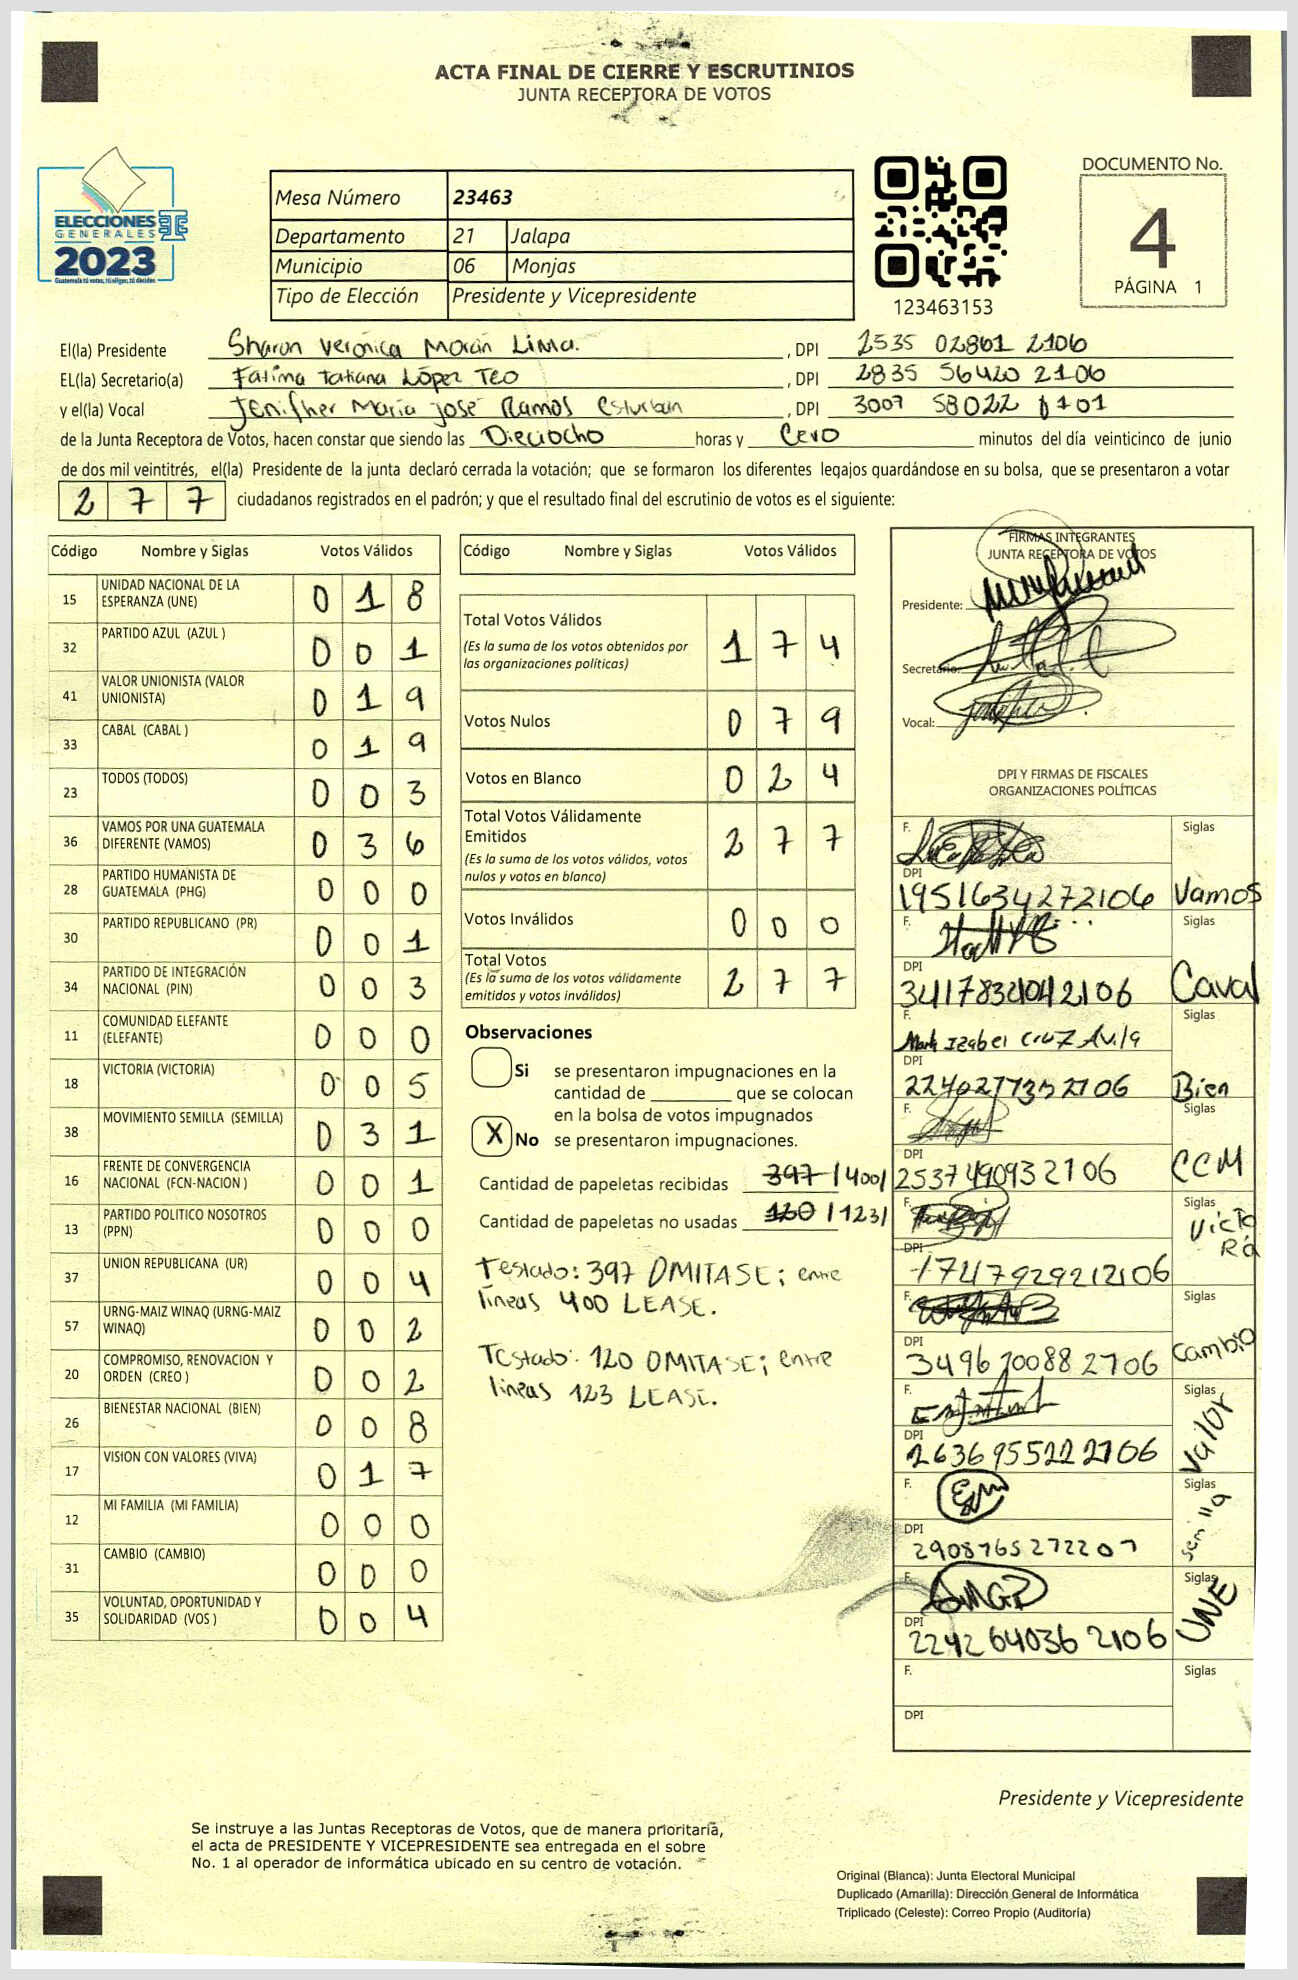 ACTA FINAL DE CIERRE Y ESCRUTINIOS
JUNTA RECEPTORA DE VOTOS
ELECCIONES
GENERALES
2023
Mesa Número 23463
Departamento 21 Jalapa
Municipio 06 Monjas
Tipo de Elección Presidente y Vicepresidente
123463153
DOCUMENTO No.
4
PÁGINA 1
El(la) Presidente Sharon Verónica Morán Lima. , DPI 2535 02861 2106
EL(la) Secretario(a) Fatima Tatiana López Teo , DPI 2835 56420 2106
y el(la) Vocal Jenifher María José Ramos Esturban , DPI 3007 58022 0101
de la Junta Receptora de Votos, hacen constar que siendo las Dieciocho horas y Cero minutos del día veinticinco de junio
de dos mil veintitrés, el(la) Presidente de la junta declaró cerrada la votación; que se formaron los diferentes legajos guardándose en su bolsa, que se presentaron a votar
277 ciudadanos registrados en el padrón; y que el resultado final del escrutinio de votos es el siguiente:
Código Nombre y Siglas Votos Válidos
15 UNIDAD NACIONAL DE LA ESPERANZA (UNE) 018
32 PARTIDO AZUL (AZUL ) 001
41 VALOR UNIONISTA (VALOR UNIONISTA) 019
33 CABAL (CABAL ) 019
23 TODOS (TODOS) 003
36 VAMOS POR UNA GUATEMALA DIFERENTE (VAMOS) 036
28 PARTIDO HUMANISTA DE GUATEMALA (PHG) 000
30 PARTIDO REPUBLICANO (PR) 001
34 PARTIDO DE INTEGRACIÓN NACIONAL (PIN) 003
11 COMUNIDAD ELEFANTE (ELEFANTE) 000
18 VICTORIA (VICTORIA) 005
38 MOVIMIENTO SEMILLA (SEMILLA) 031
16 FRENTE DE CONVERGENCIA NACIONAL (FCN-NACION ) 001
13 PARTIDO POLITICO NOSOTROS (PPN) 000
37 UNION REPUBLICANA (UR) 004
57 URNG-MAIZ WINAQ (URNG-MAIZ WINAQ) 002
20 COMPROMISO, RENOVACION Y ORDEN (CREO ) 002
26 BIENESTAR NACIONAL (BIEN) 008
17 VISION CON VALORES (VIVA) 017
12 MI FAMILIA (MI FAMILIA) 000
31 CAMBIO (CAMBIO) 000
35 VOLUNTAD, OPORTUNIDAD Y SOLIDARIDAD (VOS ) 004
Código Nombre y Siglas Votos Válidos
Total Votos Válidos 174
(Es la suma de los votos obtenidos por
las organizaciones políticas)
Votos Nulos 079
Votos en Blanco 024
Total Votos Válidamente
Emitidos 277
(Es la suma de los votos válidos, votos
nulos y votos en blanco)
Votos Inválidos 000
Total Votos 277
(Es la suma de los votos válidamente
emitidos y votos inválidos)
Observaciones
Si se presentaron impugnaciones en la
cantidad de ________ que se colocan
en la bolsa de votos impugnados
X No se presentaron impugnaciones.
Cantidad de papeletas recibidas 397 /400/
Cantidad de papeletas no usadas 120 /123/
Testado: 397 OMITASE; entre
lineas 400 LEASE.
Testado: 120 OMITASE; entre
lineas 123 LEASE.
FIRMAS INTEGRANTES
JUNTA RECEPTORA DE VOTOS
Presidente:
Secretario:
Vocal:
DPI Y FIRMAS DE FISCALES
ORGANIZACIONES POLÍTICAS
F. Siglas
DPI
1951634272106 Vamos
F. Siglas
DPI
Caval
F. Izabel Cruz Avila Siglas
DPI
Bien
F. Siglas
DPI
2537490932106 CCM
F. Siglas
DPI
1747929212106 Victo
Ra
F. Siglas
DPI
3496700882106 Cambio
F. Siglas
DPI
2636955222106 Valor
F. Siglas
DPI
2908765272207 Semilla
F. Siglas
DPI
2242640362106 UNE
F. Siglas
DPI
Presidente y Vicepresidente
Se instruye a las Juntas Receptoras de Votos, que de manera prioritaria,
el acta de PRESIDENTE Y VICEPRESIDENTE sea entregada en el sobre
No. 1 al operador de informática ubicado en su centro de votación.
Original (Blanca): Junta Electoral Municipal
Duplicado (Amarilla): Dirección General de Informática
Triplicado (Celeste): Correo Propio (Auditoría)